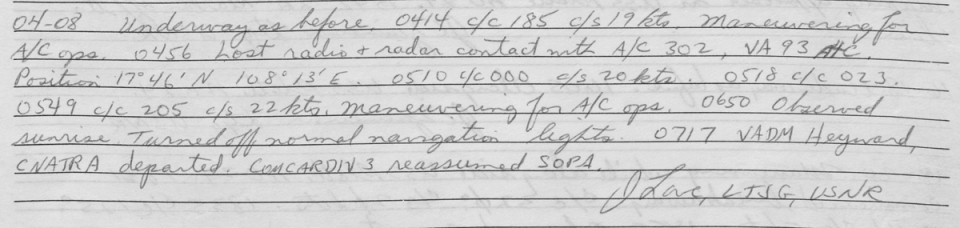 04-08 Underway as before. 0414 c/c 185 c/s 19 kts. Maneuvering for
A/C ops. 0456 Lost radio + radar contact with A/C 302, VA 93 A/C.
Position 17°46' N 108°13' E. 0510 c/c 000 c/s 20 kts. 0518 c/c 023.
0549 c/c 205 c/s 22 kts. Maneuvering for A/C ops. 0650 Observed
sunrise. Turned off normal navigation lights. 0717 VADM Heyward,
CNATRA departed. COMCARDIV 3 reassumed SOPA.
LTJG, USNR